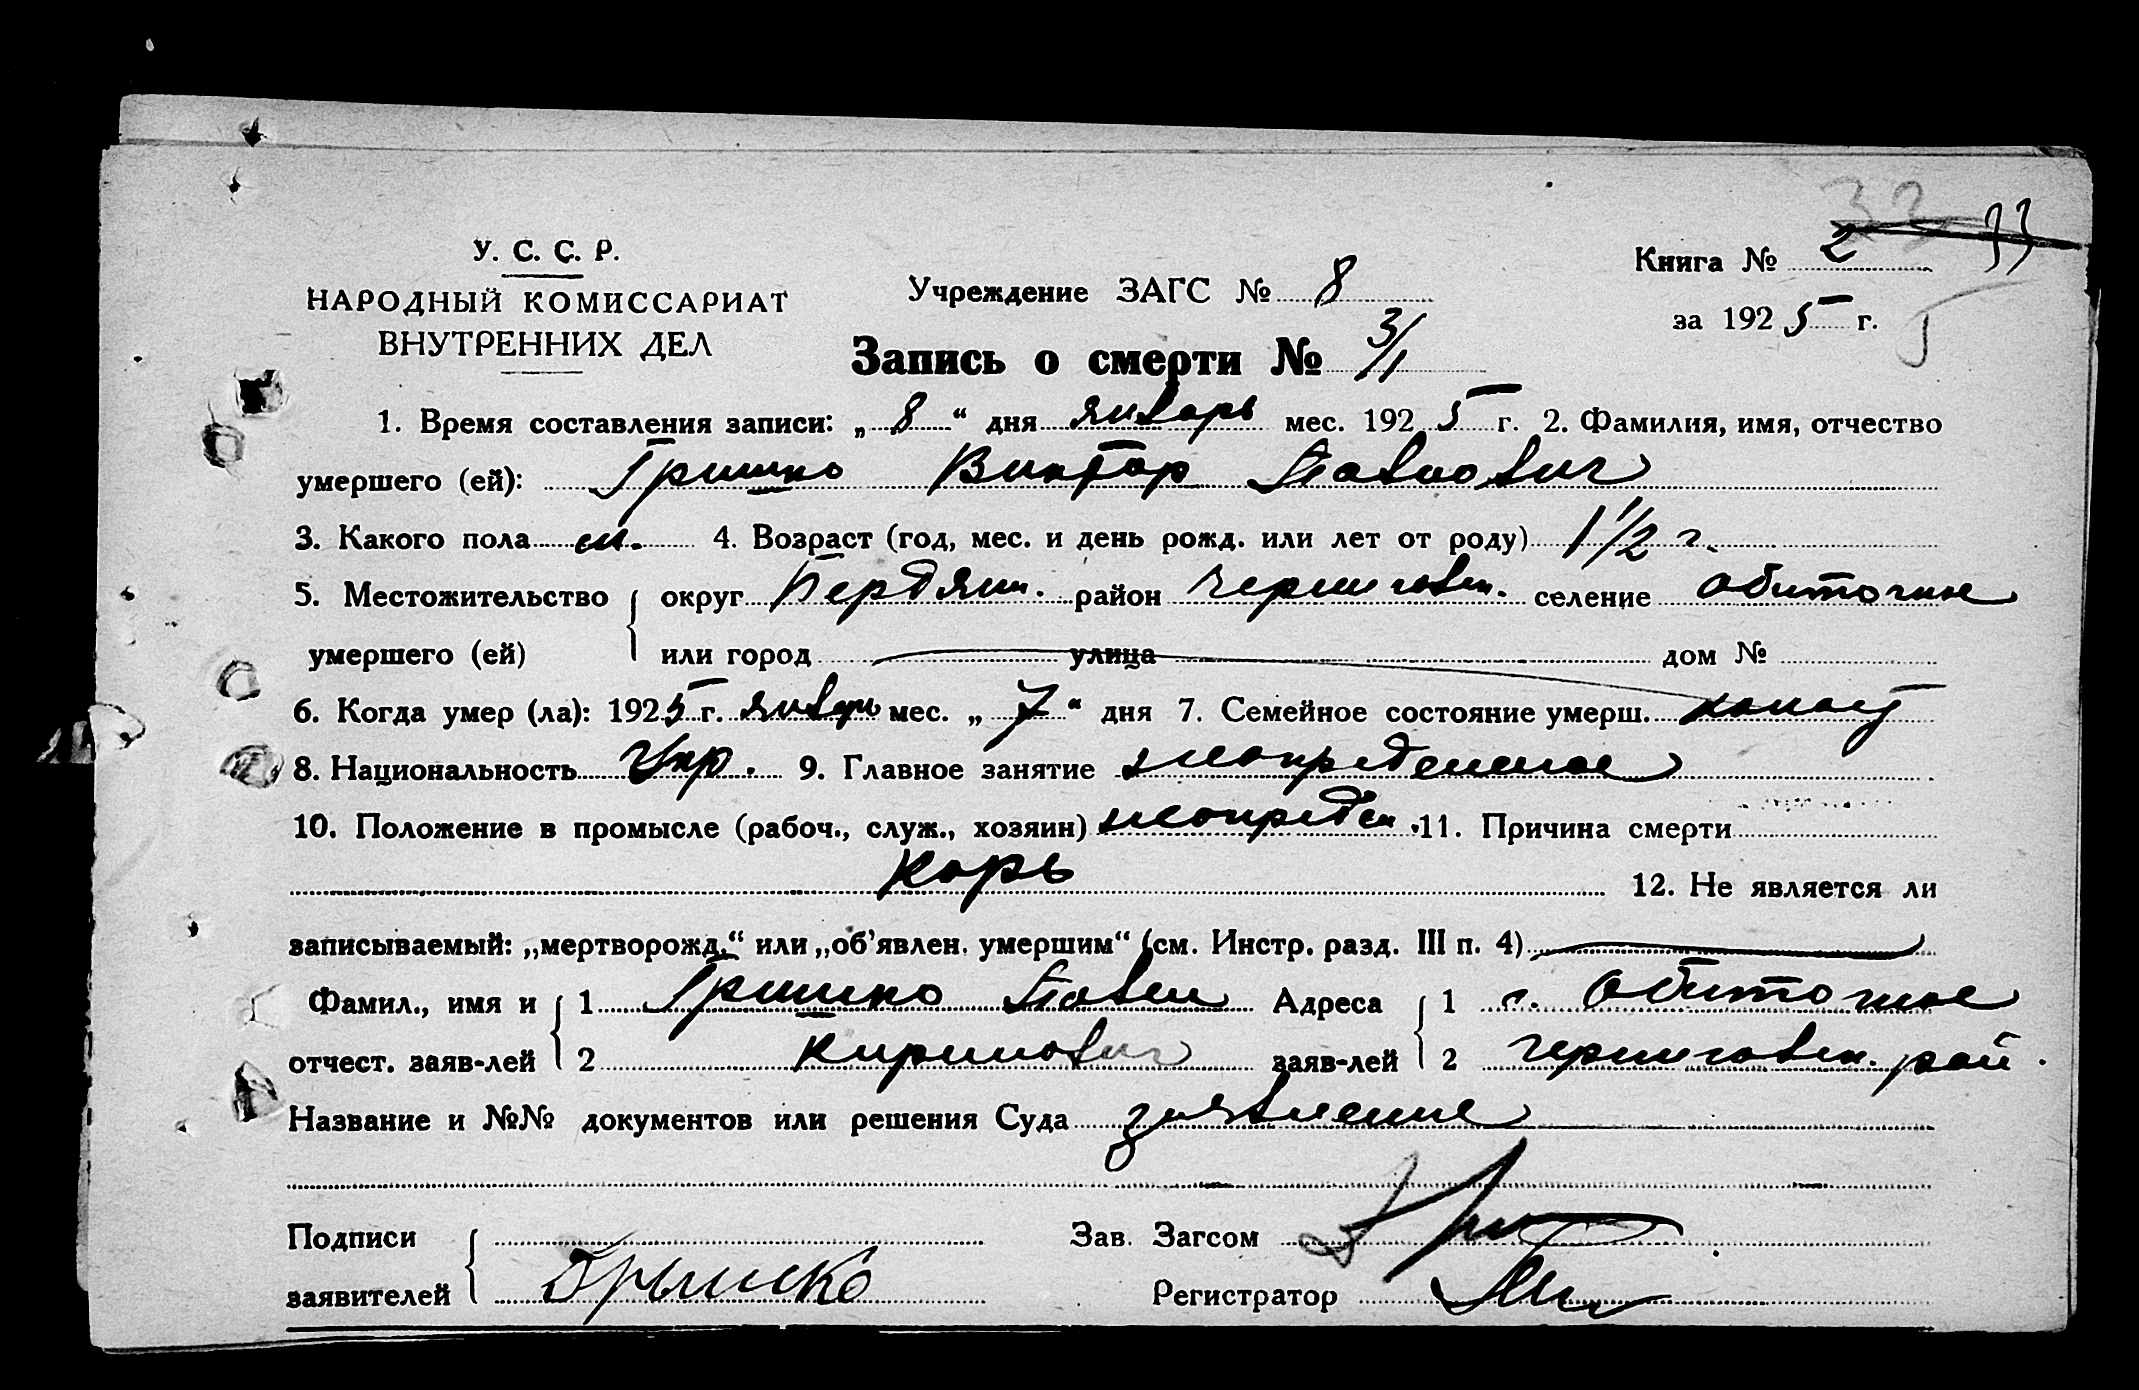 33 33
У. С. С. Р.
НАРОДНЫЙ КОМИССАРИАТ
ВНУТРЕННИХ ДЕЛ
Учреждение ЗАГС № 8
Книга № 2
за 1925 г. 5
Запись о смерти № 3/1
1. Время составления записи: „ 8 “ дня январь мес. 1925 г. 2. Фамилия, имя, отчество
умершего (ей): Гришко Виктор Павлович
3. Какого пола м. 4. Возраст (год, мес. и день рожд. или лет от роду) 1 1/2 г.
5. Местожительство округ Бердянн. район Черниговск. селение Обиточное
умершего (ей) или город улица дом №
6. Когда умер (ла): 1925 г. январь мес. „ 7 “ дня 7. Семейное состояние умерш. холост
8. Национальность Укр. 9. Главное занятие неопределенное
10. Положение в промысле (рабоч., служ., хозяин) неопредел. 11. Причина смерти
Корь 12. Не является ли
записываемый: „мертворожд.“ или „об’явлен. умершим“ (см. Инстр. разд. III п. 4)
Фамил., имя и 1 Гришко Павел Адреса 1 с. Обиточное
отчест. заяв-лей 2 Кирилович заяв-лей 2 Черниговск. рай.
Название и №№ документов или решения Суда заявление
Подписи Зав. Загсом
заявителей Грышко Регистратор